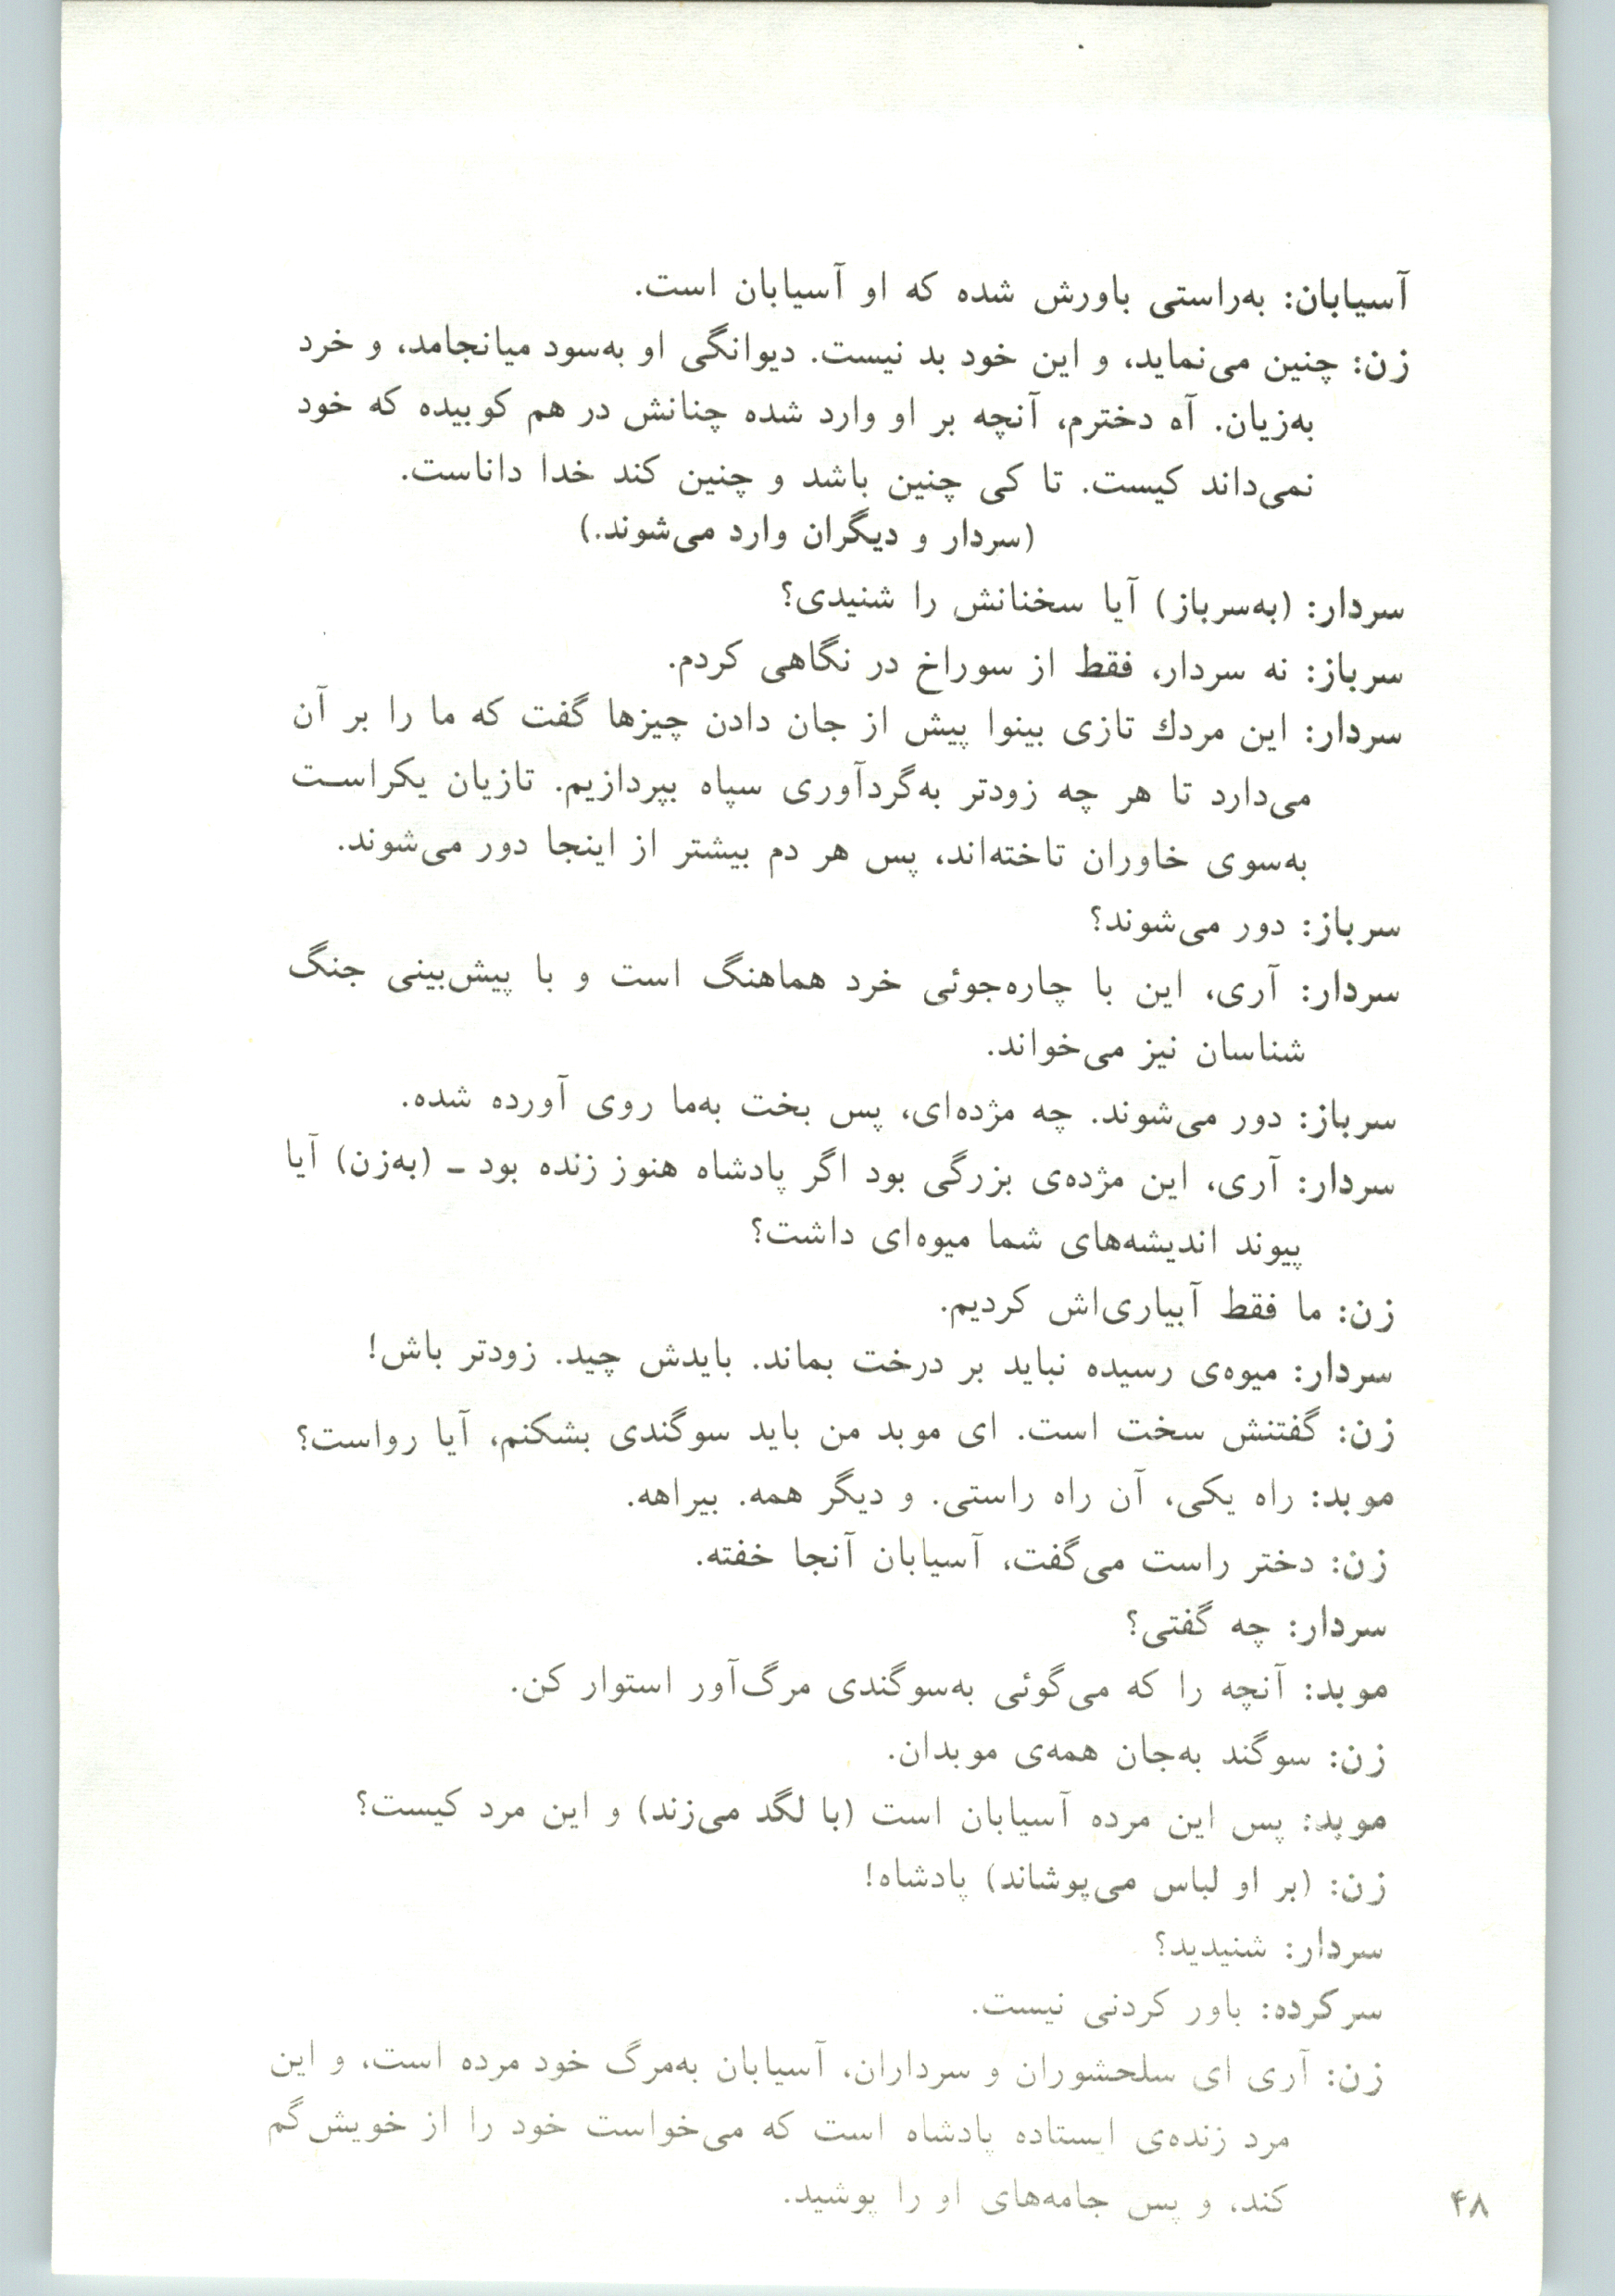 آسیابان: به‌راستی باورش شده که او آسیابان است.
زن: چنین می‌نماید، و این خود بد نیست. دیوانگی او به‌سود میانجامد، و خرد
به‌زیان. آه دخترم، آنچه بر او وارد شده چنانش در هم کوبیده که خود
نمی‌داند کیست. تا کی چنین باشد و چنین کند خدا داناست.
(سردار و دیگران وارد می‌شوند.)
سردار: (به‌سرباز) آیا سخنانش را شنیدی؟
سرباز: نه سردار، فقط از سوراخ در نگاهی کردم.
سردار: این مردك تازی بینوا پیش از جان دادن چیزها گفت که ما را بر آن
می‌دارد تا هر چه زودتر به‌گردآوری سپاه بپردازیم. تازیان یکراست
به‌سوی خاوران تاخته‌اند، پس هر دم بیشتر از اینجا دور می‌شوند.
سرباز: دور می‌شوند؟
سردار: آری، این با چاره‌جوئی خرد هماهنگ است و با پیش‌بینی جنگ
شناسان نیز می‌خواند.
سرباز: دور می‌شوند. چه مژده‌ای، پس بخت به‌ما روی آورده شده.
سردار: آری، این مژده‌ی بزرگی بود اگر پادشاه هنوز زنده بود ــ (به‌زن) آیا
پیوند اندیشه‌های شما میوه‌ای داشت؟
زن: ما فقط آبیاری‌اش کردیم.
سردار: میوه‌ی رسیده نباید بر درخت بماند. بایدش چید. زودتر باش!
زن: گفتنش سخت است. ای موبد من باید سوگندی بشکنم، آیا رواست؟
موبد: راه یکی، آن راه راستی. و دیگر همه. بیراهه.
زن: دختر راست می‌گفت، آسیابان آنجا خفته.
سردار: چه گفتی؟
موبد: آنچه را که می‌گوئی به‌سوگندی مرگ‌آور استوار کن.
زن: سوگند به‌جان همه‌ی موبدان.
موبد: پس این مرده آسیابان است (با لگد می‌زند) و این مرد کیست؟
زن: (بر او لباس می‌پوشاند) پادشاه!
سردار: شنیدید؟
سرکرده: باور کردنی نیست.
زن: آری ای سلحشوران و سرداران، آسیابان به‌مرگ خود مرده است، و این
مرد زنده‌ی ایستاده پادشاه است که می‌خواست خود را از خویش گم
کند، و پس جامه‌های او را پوشید.
۴۸